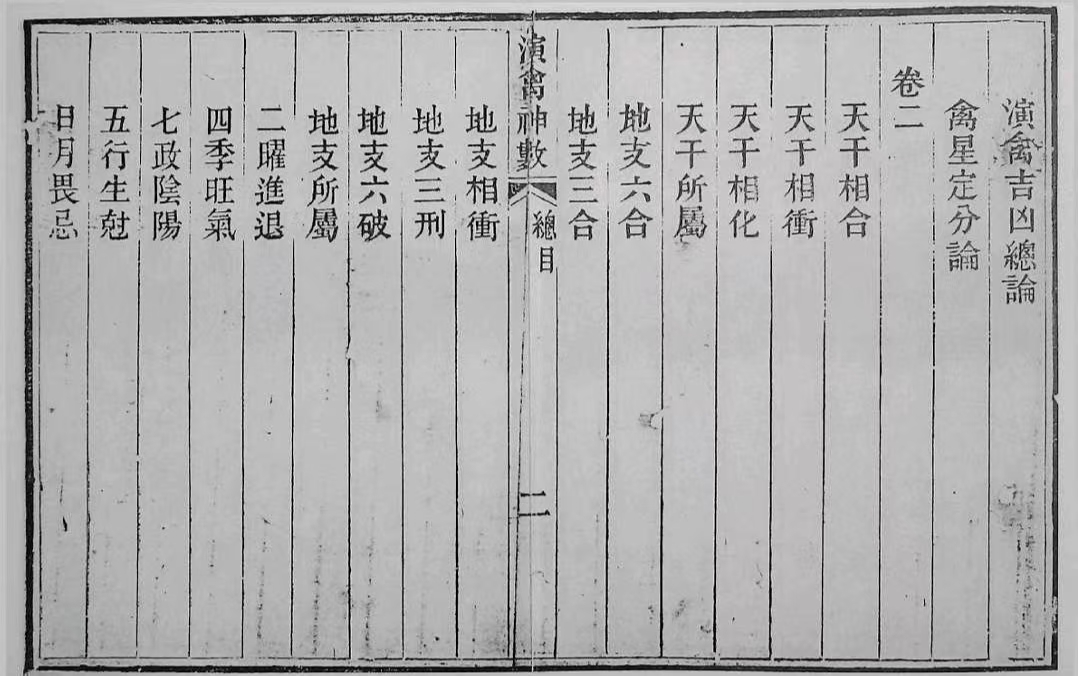 演禽吉凶總論
禽星定分論
卷二
天干相合
天干相衝
天干相化
天干所屬
地支六合
地支三合
演禽神數
總目
二
地支相衝
地支三刑
地支六破
地支所屬
二曜進退
四季旺氣
七政陰陽
五行生尅
日月畏忌